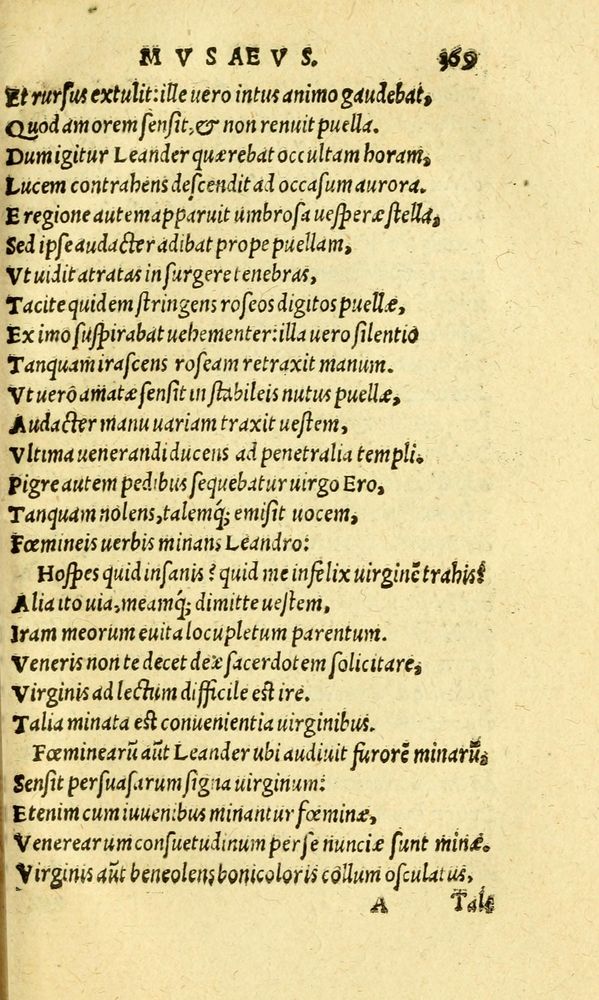 MVSAEVS. 369
Et rursus extulit: ille uero intus animo gaudebat,
Quod amorem sensit, & non renuit puella.
Dum igitur Leander quærebat occultam horam,
Lucem contrahens descendit ad occasum aurora.
E regione autem apparuit umbrosa uesperæ stella,
Sed ipse audacter adibat prope puellam,
Vt uidit atratas insurgere tenebras,
Tacite quidem stringens roseos digitos puellæ,
Ex imo suspirabat uehementer: illa uero silentio
Tanquam irascens roseam retraxit manum.
Vt uero amatæ sensit instabileis nutus puellæ,
Audacter manu uariam traxit uestem,
Vltima uenerandi ducens ad penetralia templi.
Pigre autem pedibus sequebatur uirgo Ero,
Tanquam nolens, talemq; emisit uocem,
Fœmineis uerbis minans Leandro:
Hospes quid insanis? quid me infelix uirginē trahis?
Alia ito uia, meamq; dimitte uestem,
Iram meorum euita locupletum parentum.
Veneris non te decet deæ sacerdotem solicitare,
Virginis ad lectum difficile est ire.
Talia minata est conuenientia uirginibus.
Fœminearū aūt Leander ubi audiuit furorē minarū,
Sensit persuasarum signa uirginum:
Etenim cum iuuenibus minantur fœminæ,
Venerearum consuetudinum per se nunciæ sunt minæ.
Virginis aūt beneolens bonicoloris collum osculatus,
A Tale